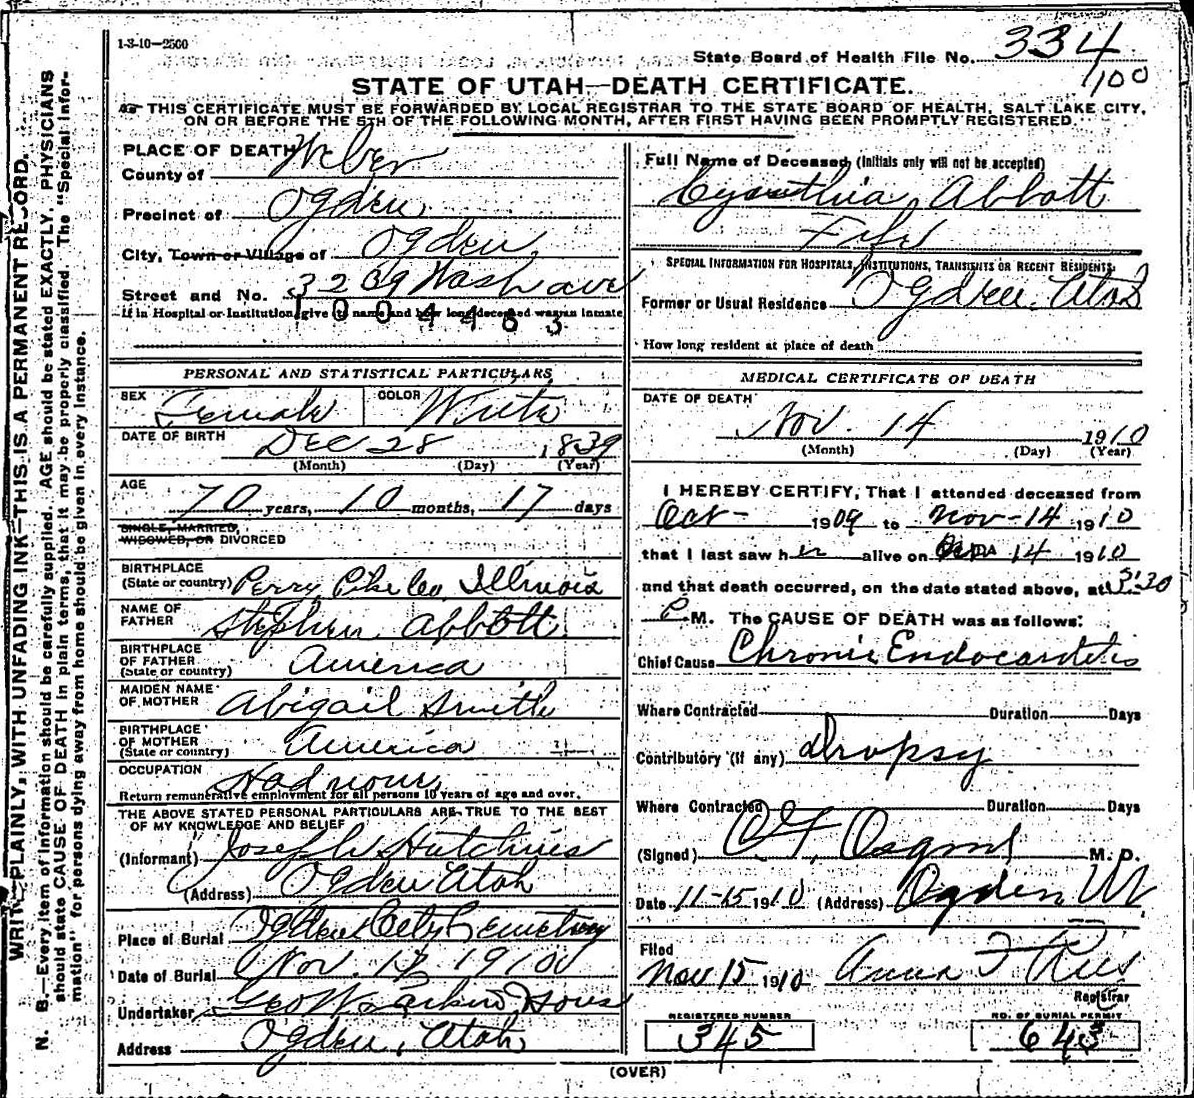 1-3-10—2500
State Board of Health File No. 334
100
STATE OF UTAH—DEATH CERTIFICATE.
THIS CERTIFICATE MUST BE FORWARDED BY LOCAL REGISTRAR TO THE STATE BOARD OF HEALTH, SALT LAKE CITY,
ON OR BEFORE THE 5TH OF THE FOLLOWING MONTH, AFTER FIRST HAVING BEEN PROMPTLY REGISTERED.
WRITE PLAINLY, WITH UNFADING INK—THIS IS A PERMANENT RECORD.
N. B.—Every item of information should be carefully supplied. AGE should be stated EXACTLY. PHYSICIANS
should state CAUSE OF DEATH in plain terms, that it may be properly classified. The "Special Infor-
mation" for persons dying away from home should be given in every instance.
PLACE OF DEATH
County of Weber
Precinct of Ogden
City, Town or Village of Ogden
Street and No. 3269 Wash ave
If in Hospital or Institution, give its name and how long deceased was an inmate
1004463
PERSONAL AND STATISTICAL PARTICULARS
SEX Female COLOR White
DATE OF BIRTH Dec 28 1839
(Month) (Day) (Year)
AGE 70 years, 10 months, 17 days
SINGLE, MARRIED,
WIDOWED, OR DIVORCED
BIRTHPLACE
(State or country) Perry Pike Co, Illinois
NAME OF
FATHER Stephen Abbott
BIRTHPLACE
OF FATHER
(State or country) America
MAIDEN NAME
OF MOTHER Abigail Smith
BIRTHPLACE
OF MOTHER
(State or country) America
OCCUPATION Had none
Return remunerative employment for all persons 10 years of age and over.
THE ABOVE STATED PERSONAL PARTICULARS ARE TRUE TO THE BEST
OF MY KNOWLEDGE AND BELIEF
(Informant) Joseph Hutchins
(Address) Ogden Utah
Place of Burial Ogden City Cemetery
Date of Burial Nov. 1910
Undertaker Geo W Larkin & Sons
Address Ogden, Utah
Full Name of Deceased, (Initials only will not be accepted)
Cyanthia Abbott
Fife
SPECIAL INFORMATION FOR HOSPITALS, INSTITUTIONS, TRANSIENTS OR RECENT RESIDENTS.
Former or Usual Residence Ogden Utah
How long resident at place of death
MEDICAL CERTIFICATE OF DEATH
DATE OF DEATH
Nov. 14 1910
(Month) (Day) (Year)
I HEREBY CERTIFY, That I attended deceased from
Oct - 1909 to Nov-14 1910
that I last saw her alive on 14 1910
and that death occurred, on the date stated above, at 3:30
P. M. The CAUSE OF DEATH was as follows:
Chief Cause Chronic Endocarditis
Where Contracted Duration Days
Contributory (if any) Dropsy
Where Contracted Duration Days
(Signed) Osgood M. D.
Date 11-15 1910 (Address) Ogden Ut.
Filed
Nov 15 1910 Anna F Ries
Registrar
REGISTERED NUMBER
345
NO. OF BURIAL PERMIT
643
(OVER)